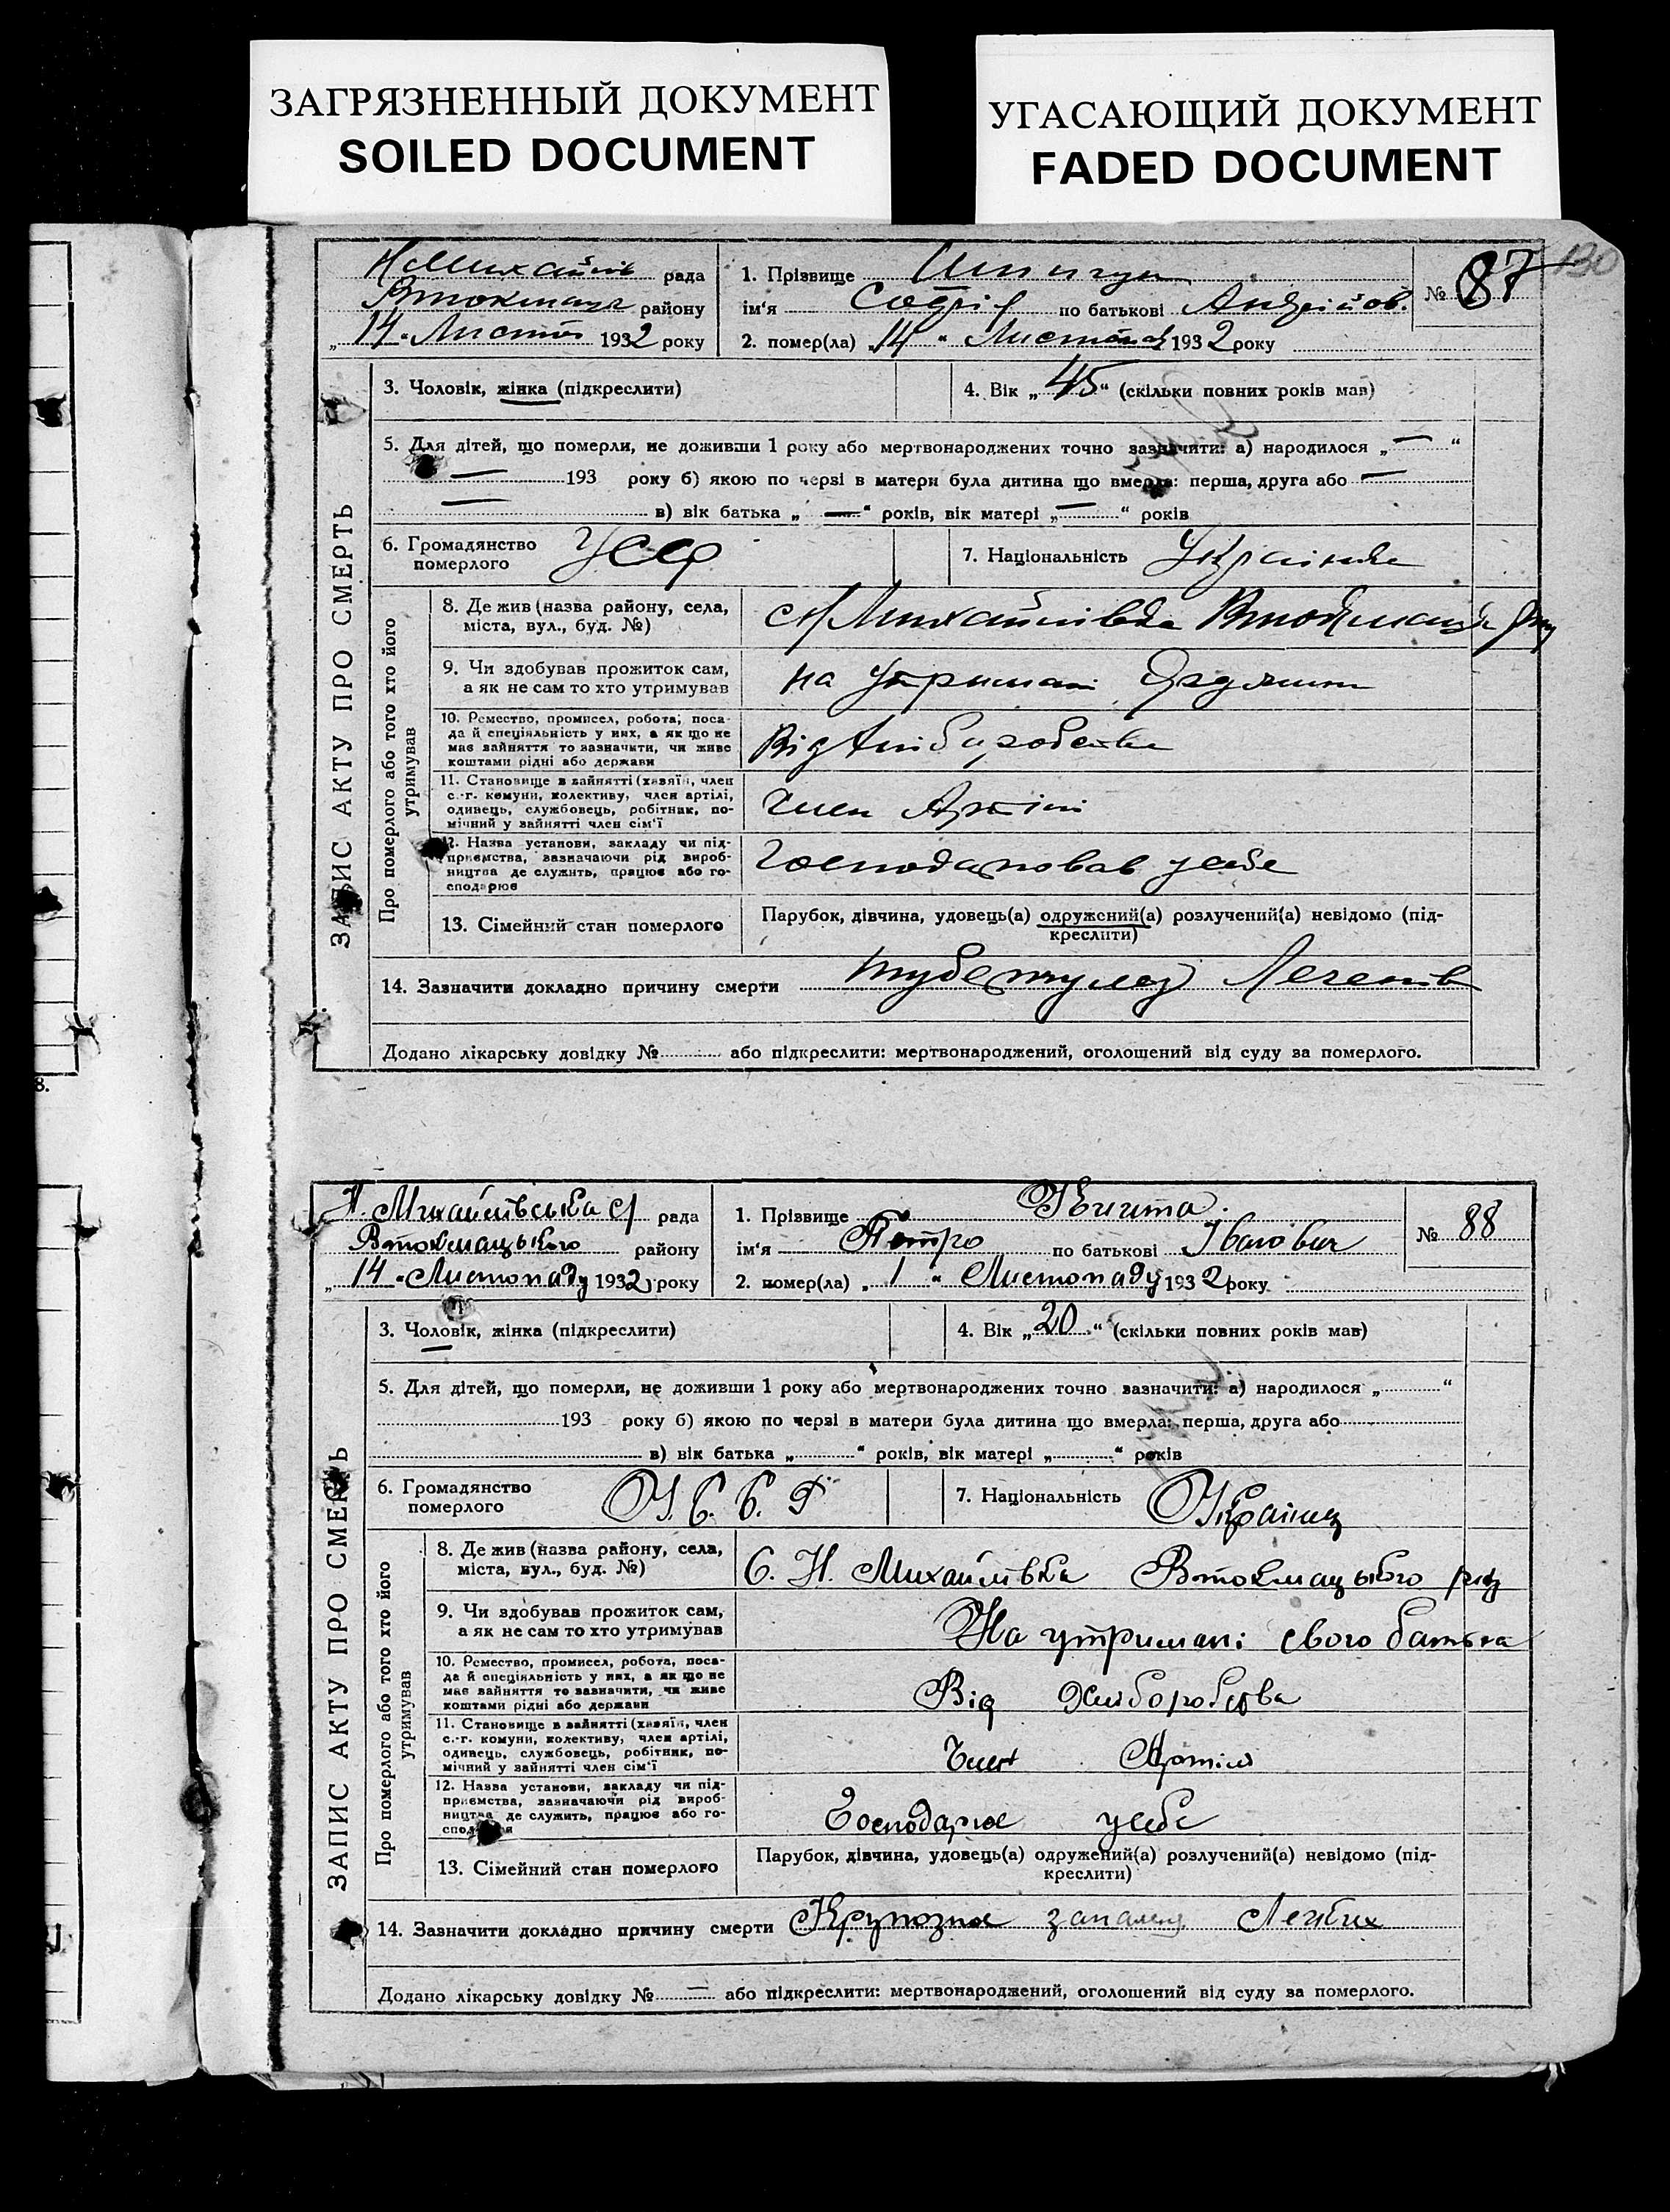 ЗАГРЯЗНЕННЫЙ ДОКУМЕНТ
SOILED DOCUMENT
УГАСАЮЩИЙ ДОКУМЕНТ
FADED DOCUMENT
130
Н Михайлів рада
району
„14“ Листоп 1932 року
1. Прізвище
ім'я по батькові Андрійов.
2. помер(ла) „14“ Листопад 1932 року
№ 87
ЗАПИС АКТУ ПРО СМЕРТЬ
3. Чоловік, жінка (підкреслити)
4. Вік „45“ (скільки повних років мав)
5. Для дітей, що померли, не доживши 1 року або мертвонароджених точно зазначити: а) народилося „—“
— 193 року б) якою по черзі в матери була дитина що вмерла: перша, друга або —
— в) вік батька „—“ років, вік матері „—“ років
6. Громадянство
померлого
УССР
7. Національність Українка
Про померлого або того хто його
утримував
8. Де жив (назва району, села,
міста, вул., буд. №)
с Н Михайлівка
9. Чи здобував прожиток сам,
а як не сам то хто утримував
на утримані
10. Ремество, промисел, робота, поса-
да й спеціяльність у них, а як що не
має зайняття то зазначити, чи живе
коштами рідні або держави
Від хліборобства
11. Становище в зайнятті (хазяїн, член
с.-г. комуни, колективу, член артілі,
одинець, службовець, робітник, по-
мічний у зайнятті член сім'ї
Член Артілі
12. Назва установи, закладу чи під-
приємства, зазначаючи рід вироб-
ництва де служить, працює або го-
сподарює
Господарював усебе
13. Сімейний стан померлого
Парубок, дівчина, удовець(а) одружений(а) розлучений(а) невідомо (під-
креслити)
14. Зазначити докладно причину смерти туберкульоз Легенів
Додано лікарську довідку № або підкреслити: мертвонароджений, оголошений від суду за померлого.
8.
Н. Михайлівська с/ рада
Втокмацького району
„14“ Листопаду 1932 року
1. Прізвище Квита
ім'я Петро по батькові Іванович
2. помер(ла) „1“ Листопаду 1932 року
№ 88
ЗАПИС АКТУ ПРО СМЕРТЬ
3. Чоловік, жінка (підкреслити)
4. Вік „20“ (скільки повних років мав)
5. Для дітей, що померли, не доживши 1 року або мертвонароджених точно зазначити: а) народилося „ “
193 року б) якою по черзі в матери була дитина що вмерла: перша, друга або
в) вік батька „ “ років, вік матері „ “ років
6. Громадянство
померлого
У. С. С. Р
7. Національність Українец
Про померлого або того хто його
утримував
8. Де жив (назва району, села,
міста, вул., буд. №)
С. Н. Михайлівка Втокмацького
9. Чи здобував прожиток сам,
а як не сам то хто утримував
На утримані свого батька
10. Ремество, промисел, робота, поса-
да й спеціяльність у них, а як що не
має зайняття то зазначити, чи живе
коштами рідні або держави
Від Хліборобства
11. Становище в зайнятті (хазяїн, член
с.-г. комуни, колективу, член артілі,
одинець, службовець, робітник, по-
мічний у зайнятті член сім'ї
Член Артілі
12. Назва установи, закладу чи під-
приємства, зазначаючи рід вироб-
ництва де служить, працює або го-
сподарює
Господарює усебе
13. Сімейний стан померлого
Парубок, дівчина, удовець(а) одружений(а) розлучений(а) невідомо (під-
креслити)
14. Зазначити докладно причину смерти Крупозне запаленя Легких
Додано лікарську довідку № — або підкреслити: мертвонароджений, оголошений від суду за померлого.